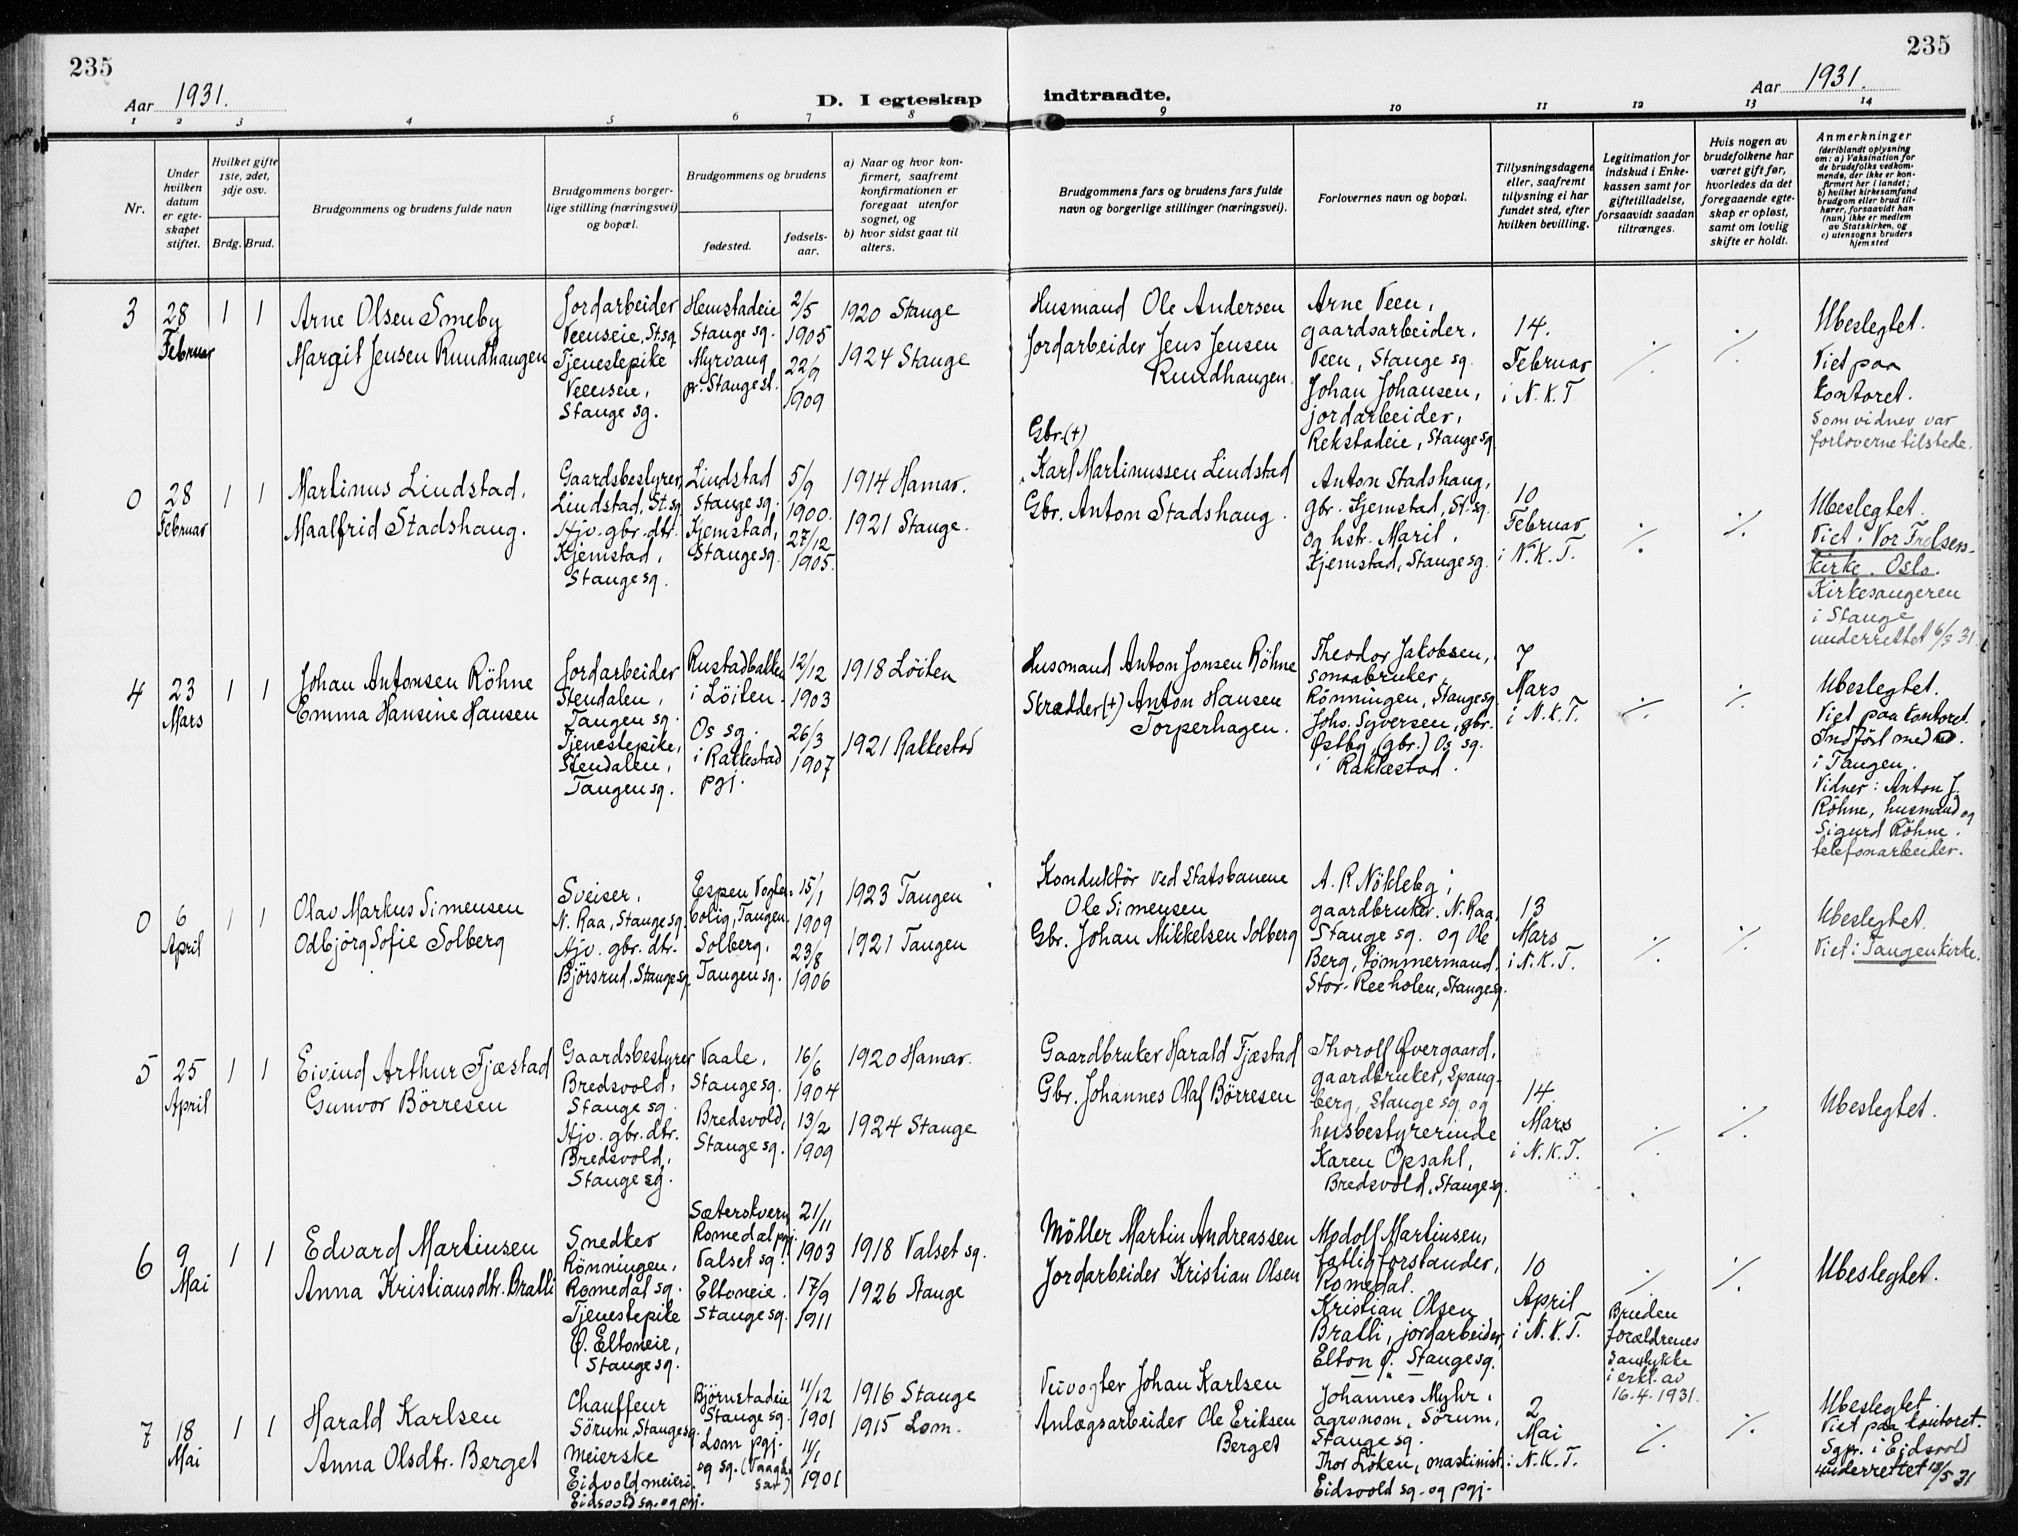 235
Aar 1931.
D. I egteskap
indtraadte.
Aar 1931.
235
1 2 3 4 5 6 7 8 9 10 11 12 13 14
Nr.
Under hvilken datum er egteskapet stiftet.
Hvilket gifte 1ste, 2det, 3dje osv.
Brdg. Brud.
Brudgommens og brudens fulde navn
Brudgommens borgerlige stilling (næringsvei) og bopæl.
Brudgommens og brudens
fødested.
fødselsaar.
a) Naar og hvor konfirmert, saafremt konfirmationen er foregaat utenfor sognet, og
b) hvor sidst gaat til alters.
Brudgommens fars og brudens fars fulde navn og borgerlige stillinger (næringsvei).
Forlovernes navn og bopæl.
Tillysningsdagene eller, saafremt tillysning ei har fundet sted, efter hvilken bevilling.
Legitimation for indskud i Enkekassen samt for giftetilladelse, forsaavidt saadan tiltrænges.
Hvis nogen av brudefolkene har været gift før, hvorledes da det foregaaende egteskap er opløst, samt om lovlig skifte er holdt.
Anmerkninger (deriblandt oplysning om: a) Vaksination for de brudefolks vedkommende, der ikke er konfirmert her i landet; b) hvilket kirkesamfund brudgom eller brud tilhører, forsaavidt han (hun) ikke er medlem av Statskirken, og c) utensogns bruders hjemsted
3
28 Februar
1 1
Arne Olsen Smeby
Margit Jensen Rundhaugen
Jordarbeider
Veenseie, St.sg.
Tjenestepike
Veenseie,
Stange sg.
Hemstadeie
Stange sg.
Myrvang
pr. Stange st.
2/5
1905
22/9
1909
1920 Stange
1924 Stange
Husmand Ole Andersen
Jordarbeider Jens Jensen
Rundhaugen.
Arne Veen,
gaardsarbeider,
Veen, Stange sg.
Johan Johansen,
jordarbeider,
Rekstadeie, Stange sg.
14.
Februar
i N.K.T
./.
./.
Ubeslegtet.
Viet paa
kontoret.
Som vidner var
forloverne tilstede.
0
28
Februar
1 1
Martinus Lindstad.
Maalfrid Stadshaug.
Gaardsbestyrer,
Lindstad, St.sg.
Hjv. gbr. dtr.
Kjemstad,
Stange sg.
Lindstad
Stange sg.
Kjemstad,
Stange sg.
5/9
1900.
27/12
1905.
1914 Hamar.
1921 Stange.
Gbr. (+)
Karl Martinussen Lindstad
Gbr. Anton Stadshaug.
Anton Stadshaug,
gbr. Kjemstad, St.sg.
og hstr. Marit,
Kjemstad, Stange sg.
10
Februar
i N.K.T.
./.
./.
Ubeslegtet.
Viet i Vor Frelsers-
kirke. Oslo.
Kirkesangeren
i Stange
underrettet 6/3 31
4
23
Mars
1 1
Johan Antonsen Röhne
Emma Hansine Hansen
Jordarbeider
Stendalen,
Tangen sg.
Tjenestepike,
Stendalen,
Tangen sg.
Rustadbakken
i Löiten.
Os sg.
i Rakkestad
pgj.
12/12
1903
26/3
1907
1918 Löiten
1921 Rakkestad
Husmand Anton Jonsen Röhne
Skrædder (+) Anton Hansen
Torperhagen.
Theodor Jakobsen,
smaabruker,
Rönningen, Stange sg.
Johs. Syversen, gbr.
Østby, (gbr.) Os sg.
i Rakkestad.
7
Mars
i N.K.T.
./.
./.
Ubeslegtet.
Viet paa kontoret.
Indført med 0.
i Tangen.
Vidner: Anton J.
Röhne, husmand og
Sigurd Röhne.
telefonarbeider.
0
6
April
1 1
Olav Markus Simensen
Odbjörg Sofie Solberg
Sveiser,
N. Raa, Stange sg.
Hjv. gbr. dtr.
Björsrud, Stange sg.
Espen Vogter-
bolig, Tangen.
Solberg,
Tangen sg.
15/1
1909
23/8
1906
1923 Tangen
1921 Tangen
Konduktör ved Statsbanene
Ole Simensen
Gbr. Johan Mikkelsen Solberg
A. R Nökleby,
gaardbruker. N. Raa,
Stange sg. og Ole
Berg, tömmermand,
Stor-Reeholen, Stange sg.
13
Mars
i N.K.T.
./.
./.
Ubeslegtet.
Viet i Tangen kirke.
5
25
April
1 1
Eivind Arthur Fjæstad
Gunvor Börresen
Gaardsbestyrer
Bredsvold,
Stange sg.
Hjv. gbr. dtr.
Bredsvold,
Stange sg.
Vaale,
Stange sg.
Bredsvold,
Stange sg.
16/6
1904
13/2
1909
1920 Hamar.
1924 Stange
Gaardbruker Harald Fjæstad
Gbr. Johannes Olaf Börresen
Thorolf Øvergaard,
gaardbruker, Spang-
berg, Stange sg. og
husbestyrerinde
Karen Opsahl,
Bredsvold, Stange sg.
14.
Mars
i N.K.T.
./.
./.
Ubeslegtet.
6
9
Mai
1 1
Edvard Martinsen
Anna Kristiansdtr. Bralli
Snedker
Rönningen,
Romedal sg.
Tjenestepike
Ø. Eltoneie,
Stange sg.
Sæterskvern
Romedal pgj.
Valset sg.
Eltoneie.
Stange sg.
21/11
1903
17/9
1911
1918 Valset sg.
1926 Stange
Möller Martin Andreassen
Jordarbeider Kristian Olsen
Modolf Martinsen,
fattigforstander,
Romedal.
Kristian Olsen
Bralli, jordarbeider,
Elton Ø. Stange sg.
10
April
i N.K.T.
./.
Bruden
forældrenes
samtykke
i erkl. av
16.4.1931.
./.
Ubeslegtet.
7
18
Mai
1 1
Harald Karlsen
Anna Olsdtr. Berget
Chauffeur
Sörum, Stange sg.
Meierske
Eidsvold meieri.
Eidsvold sg. og pgj.
Björnstadeie
Stange sg.
Lom pgj.
og sg.
11/12
1901
11/1
1901
1916 Stange
1915 Lom.
Veivogter Johan Karlsen
Anlægsarbeider Ole Eriksen
Berget
Johannes Myhr,
agronom, Sörum,
Stange sg.
Thor Löken, maskinist,
Eidsvold sg. og pgj.
2
Mai
i N.K.T.
./.
./.
Ubeslegtet.
Viet paa kontoret.
Sgpr. i Eidsvold
underrettet 18/5 31